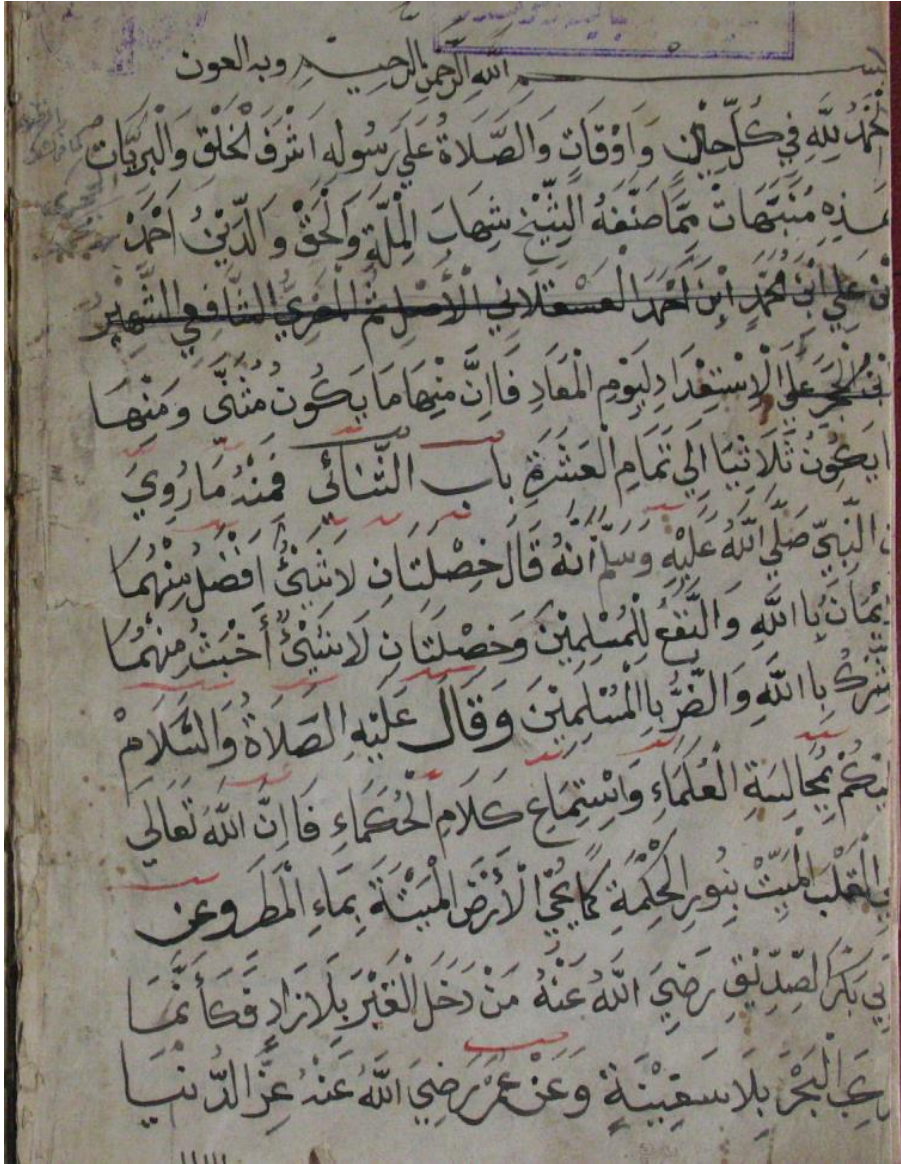 بسم الله الرحمن الرحيم وبه العون
الْحَمْدُ لِلَّهِ فِي كُلِّ حِيْنٍ وَاَوْقَاتٍ وَالصَّلَاةُ عَلَي رَسُولِهِ اَشْرَفِ الْخَلْقِ وَالْبَرِيَّاتِ
هذِهِ مُنَبِّهَاتٌ مِمَّا صَنَّفَهُ الشَّيْخُ شِهَابَ الْمِلَّةِ وَالْحَقِّ وَالدِّيْنِ اَحْمَدُ
بْنُ عَلِي ابْنِ مُحَمَّدٍ اِبْنِ اَحْمَدَ الْعَسْقَلَانِي الْأَصْلِ ثُمَّ الْمِصْرِيّ الشَّافِعِي الشَّهِيْرِ
ابْن الْحَجَرِ عَلَي الْاِسْتِعْدَادِ لِيَوْمِ الْمَعَادِ فَااِنَّ مِنْهَا مَا يَكُونُ مُثَنَّى وَمِنْهَا
ا يَكُونُ ثُلَاثِيَا اِلَي تَمَامِ الْعَشَرَةِ باب الثُّنَائي فَمِنْهُ مَا رُوِيَ
النَّبِيّ صَلَّي اللهُ عَلَيْهِ وَسَلَّمَ اَنَّهُ قَالَ خِصْلَتَانِ لَا شَيْئَ اَفْضَلُ مِنْهُمَا
يْمَانُ بِااللهِ وَالنَّفْعُ لِلْمُسْلِمِيْنَ وَخِصْلَتَانِ لَا شَيْئَ أَخْبَثُ مِنْهُمَا
شِّرْكُ بِااللهِ وَالضَّرُّ بِاالْمُسْلِمِيْنَ وَقَالَ عَلَيْهِ الصَّلَاةُ وَالسَّلَامْ
يْكُمْ بِمُجَالِسَةِ الْعُلَمَاءِ وَاِسْتِمَاعِ كَلَامِ الْحُكَمَاءِ فَااِنَّ اللهَ تَعَالَي
ي الْقَلْبَ الْمَيِّتْ بِنُورِ الْحِكْمَةِ كَمَا يُحْيِ الْأَرْضَ الْمَيْتَةَ بِمَاءِ الْمَطَرِ وعن
بِي بَكْرِ الصِّدِّيْقِ رَضِيَ اللهُ عَنْهُ مَنْ دَخَلَ الْقَبْرَ بِلَا زَادٍ فَكَأَنَّمَا
رَكِبَ الْبَحْرَ بِلَا سَفِيْنَةٍ وَعَنْ عُمَرَ رَضِيَ اللهُ عَنْهُ عِزُّ الدُّنْيَا